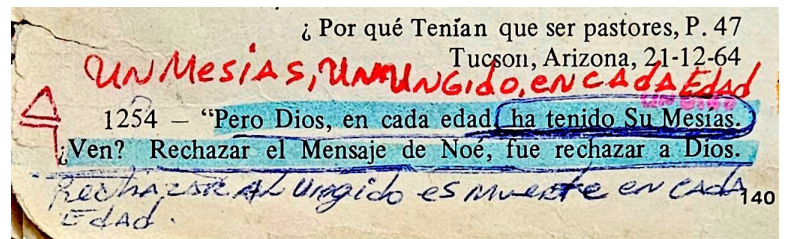 ¿ Por qué Tenían que ser pastores, P. 47
Tucson, Arizona, 21-12-64
UN MESÍAS, UN UNGIDO, EN CADA EDAD
1254 – “Pero Dios, en cada edad ha tenido Su Mesías.
¿Ven? Rechazar el Mensaje de Noé, fue rechazar a Dios.
Rechazar Al Ungido es Muerte en cada
Edad.
140